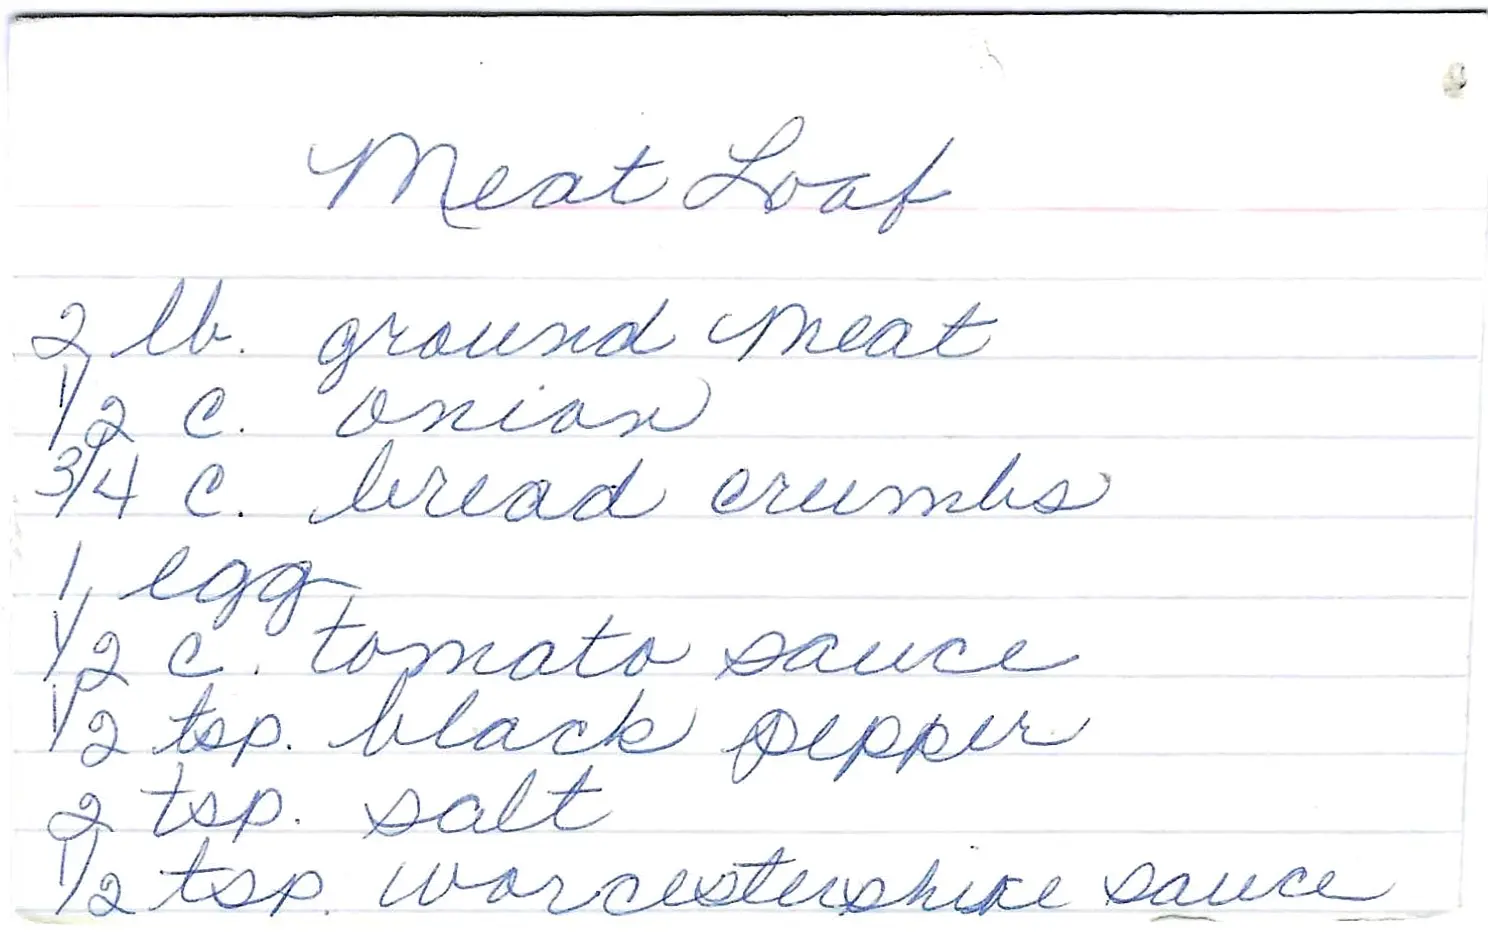 Meat Loaf
2 lb. ground meat
1/2 c. onion
3/4 c. bread crumbs
1 egg
1/2 c. tomato sauce
1/2 tsp. black pepper
2 tsp. salt
1/2 tsp. worcestershire sauce